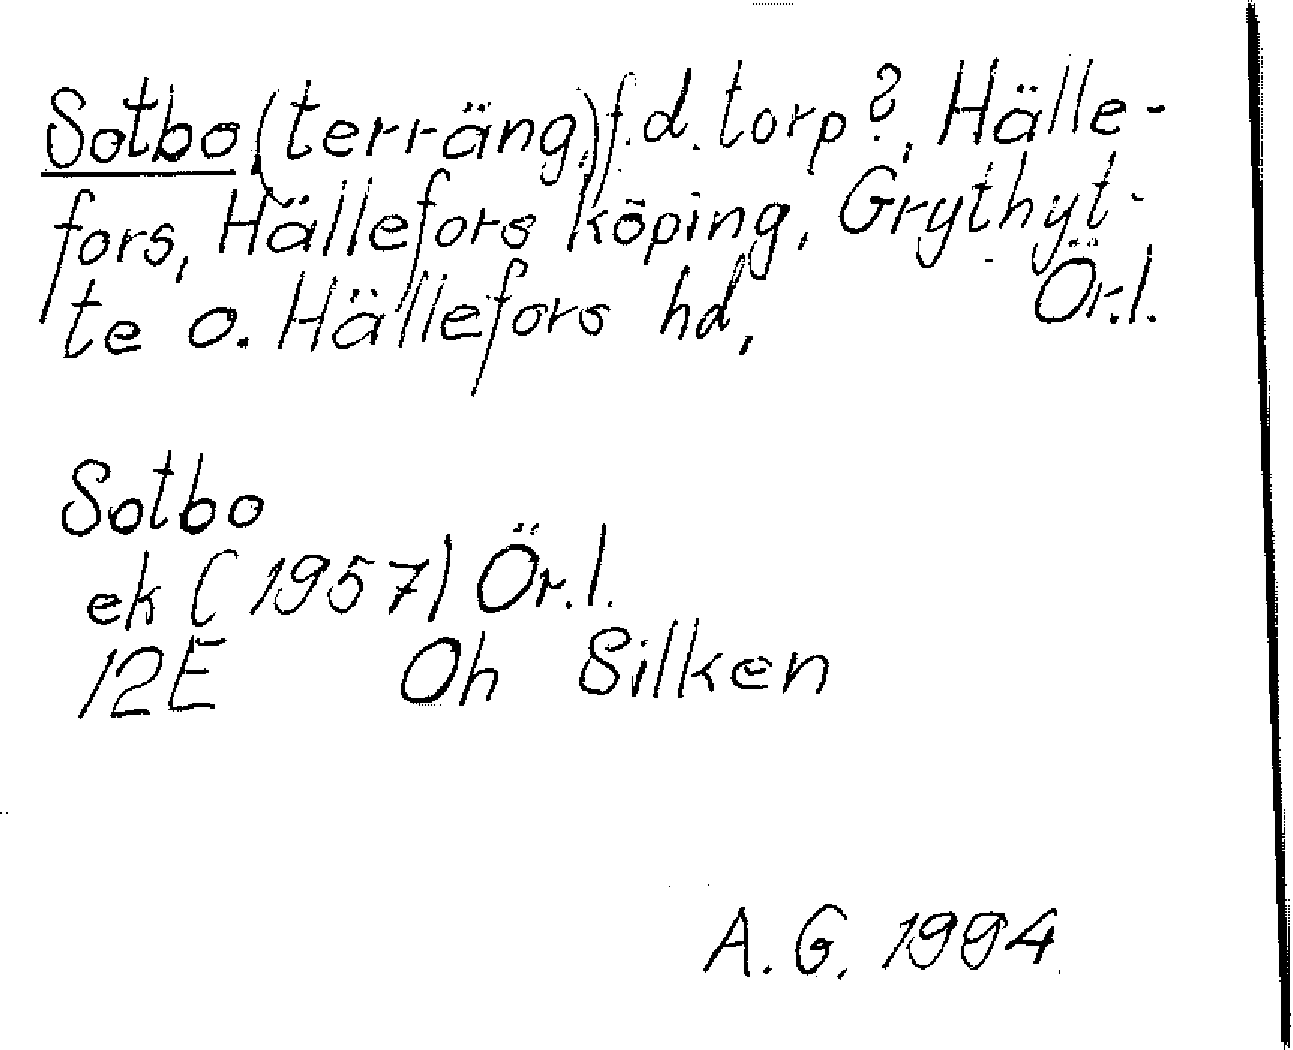 Sotbo (terräng) f.d. torp?, Hälle-
fors, Hällefors köping, Grythyt-
te o. Hällefors hd, Ör.l.
Sotbo
ek (1957) Ör.l.
12E Oh Silken
A.G. 1994